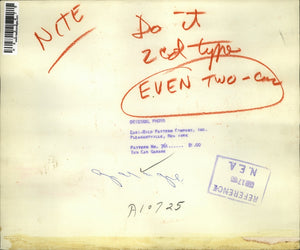 NOTE
Do it
2 col type
EVEN TWO-CAR
EASI-BILD PATTERN COMPANY, INC.
PLEASANTVILLE, NEW YORK
PATTERN NO.
$1.00
TWO CAR GARAGE
garage
A10725
REFERENCE
N.E.A.